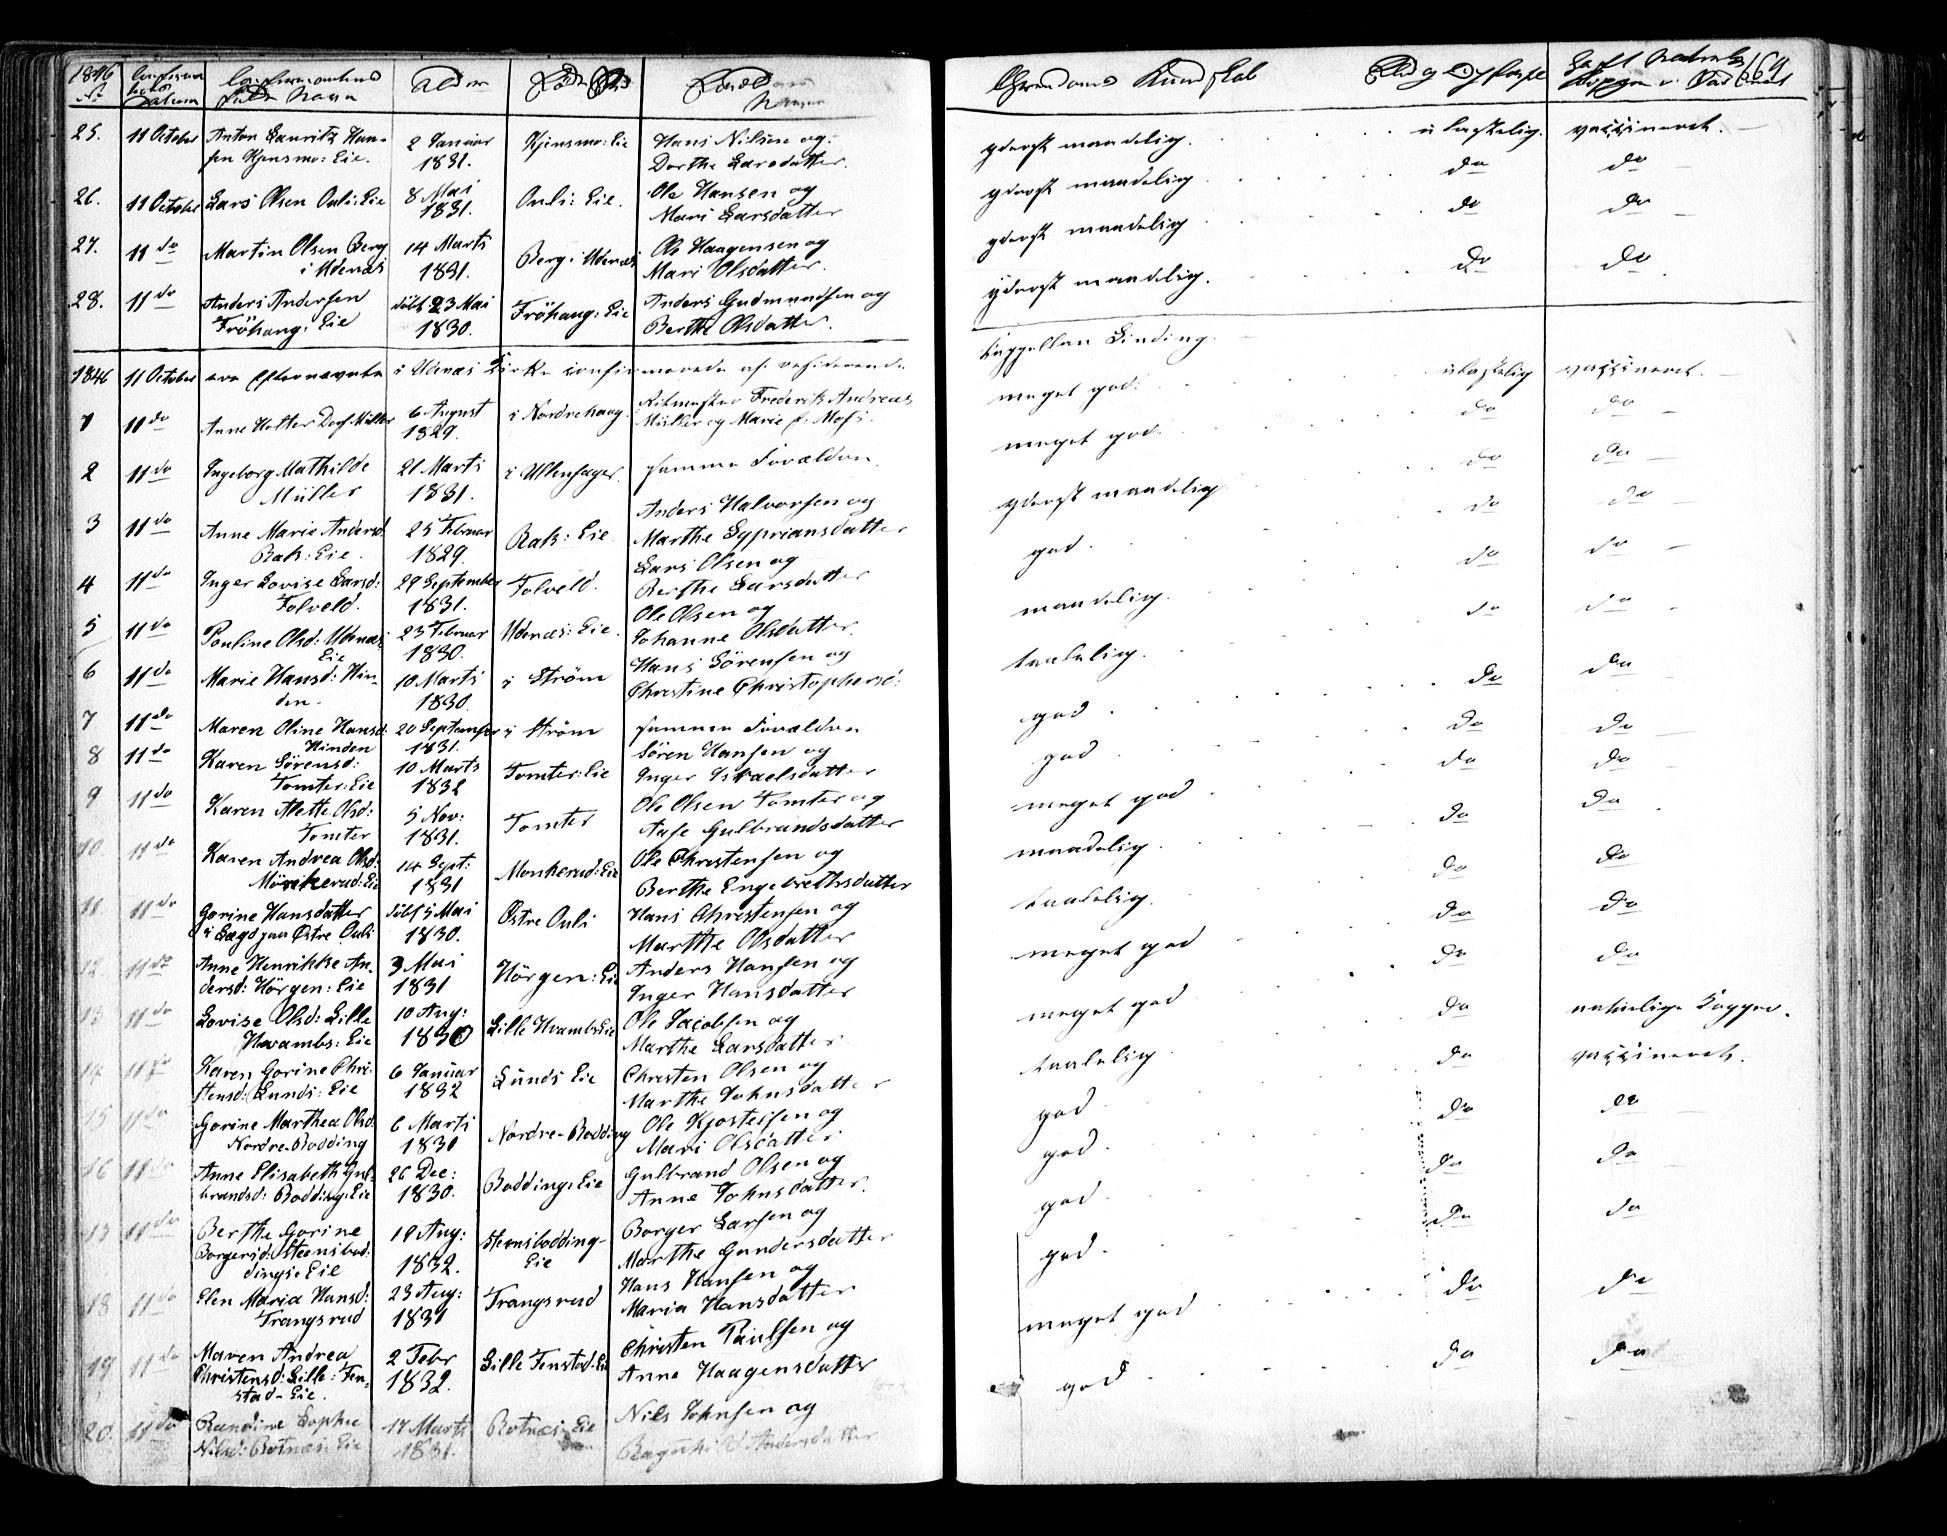 1846
No
Confirma-
tions
Datum
Confirmandens
fulde Navn
Alder
Føde Sted
Forældrenes
Navne
25. 11 October Anton Lauritz Han-
sen Kjensmo: Eie.
2 Januar
1831.
Kjensmo: Eie
Hans Nilsen og
Dorthe Larsdatter.
26. 11 October Lars Olsen Ouli: Eie
8 Mai
1831.
Ouli: Eie.
Ole Hansen og
Mari Larsdatter
27. 11 do Martin Olsen Berg
i Udenæs
14 Marts
1831.
Berg i Udenæs
Ole Haagensen og
Mari Olsdatter.
28. 11 do Anders Andersen
Fröhaug: Eie
döbt 23 Mai
1830.
Fröhaug: Eie
Anders Gudmundsen og
Berthe Olsdatter.
1846 11 October ere Efternævnte i Udenæs Kirke confirmerede af residerende
1 11 do Anne Holter Müller
6 August
1829.
i Nordrehaug.
Ritmester Frederik Andreas
Müller og Marie f. Moss.
2 11 do Ingeborg Mathilde
Müller
21 Marts
1831.
i Ullensager.
samme Forældre.
3 11 do Anne Marie Andersd:
Rak: Eie.
25 Februar
1829.
Rak: Eie
Anders Halvorsen og
Marthe Cypriansdatter
4 11 do Inger Lovise Larsd:
Folveld.
29 September
1831.
Folveld.
Lars Olsen og
Berthe Larsdatter
5 11 do Pouline Olsd: Udenæs:
Eie
23 Februar
1830.
Udenæs: Eie.
Ole Olsen og
Johanne Olsdatter.
6 11 do Marie Hansd: Hin-
den.
10 Marts
1830.
i Ström
Hans Sörensen og
Christine Christophersd:
7 11 do Maren Oline Hansd:
Hinden
20 September
1831.
i Ström
samme Forældre
8 11 do Karen Sörensd:
Tomter: Eie
10 Marts
1832
Tomter: Eie
Sören Hansen og
Inger Israelsdatter
9 11 do Karen Alette Olsd:
Tomter
5 Nov:
1831.
Tomter
Ole Olsen Tomter og
Aase Gulbrandsdatter
10 11 do Karen Andrea Olsd:
Mönkerud: Eie
14 Sept:
1831
Monkerud: Eie
Ole Christensen og
Berthe Engebrethsdatter
11 11 do Gorine Hansdatter
i Lægd paa Østre Ouli
döbt 5 Mai
1830.
Østre Ouli
Hans Christensen og
Marthe Olsdatter
12 11 do Anne Henrikke An-
dersd: Hörgen: Eie
3 Mai
1831
Hörgen: Eie
Anders Hansen og
Inger Hansdatter
13 11 do Lovise Olsd: Lille
Hvambs: Eie
10 Aug:
1830
Lille Hvambs Eie
Ole Jacobsen og
Marthe Larsdatter
14 11 do Karen Gorine Chri-
stensd: Lunds: Eie
6 Januar
1832
Lunds Eie
Christen Olsen og
Marthe Johnsdatter
15 11 do Gorine Marthea Olsd:
Nordre-Bodding
6 Marts
1830
Nordre-Bodding
Ole Kjostelsen og
Mari Olsdatter
16 11 do Anne Elisabeth Gul-
brandsd: Bodding: Eie
26 Dec:
1830.
Bodding: Eie
Gulbrand Olsen og
Anne Johnsdatter.
11 do Berthe Gorine
Borgersd: Steensbod-
dings: Eie
19 Aug:
1832.
Stensbodding-
Eie
Borger Larsen og
Marthe Gundersdatter
18 11 do Elen Maria Hansd:
Trangsrud
23 Aug:
1831
Trangsrud
Hans Hansen og
Maria Hansdatter
19 11 do Maren Andrea
Christensd: Lille: Fen-
stad-Eie.
2 Febr
1832.
Lille Fenstad-Eie
Christen Paulsen og
Anne Haagensdatter
20. 11 do Randine Sophie
Nilsd: Botnæs: Eie
17 Marts
1831.
Botnæs: Eie
Nils Johnsen og
Ragnhild Andersdatter
Christendoms Kundskab
169
yderst maadelig. ulastelig. vaccineret.
yderst maadelig do do
yderst maadelig do do
yderst maadelig. do do
Cappellan Linding.
meget god: ulastelig vaccineret.
meget god. do do
yderst maadelig do do
god. do do
maadelig. do do
taalelig. do do
god. do do
god do do
meget god do do
maadelig. do do
taalelig. do do
meget god do do
meget god do do
taalelig do naturlige Kopper.
god do vaccineret.
god. do do
god. do do
god. do do
meget god do do
god. do do